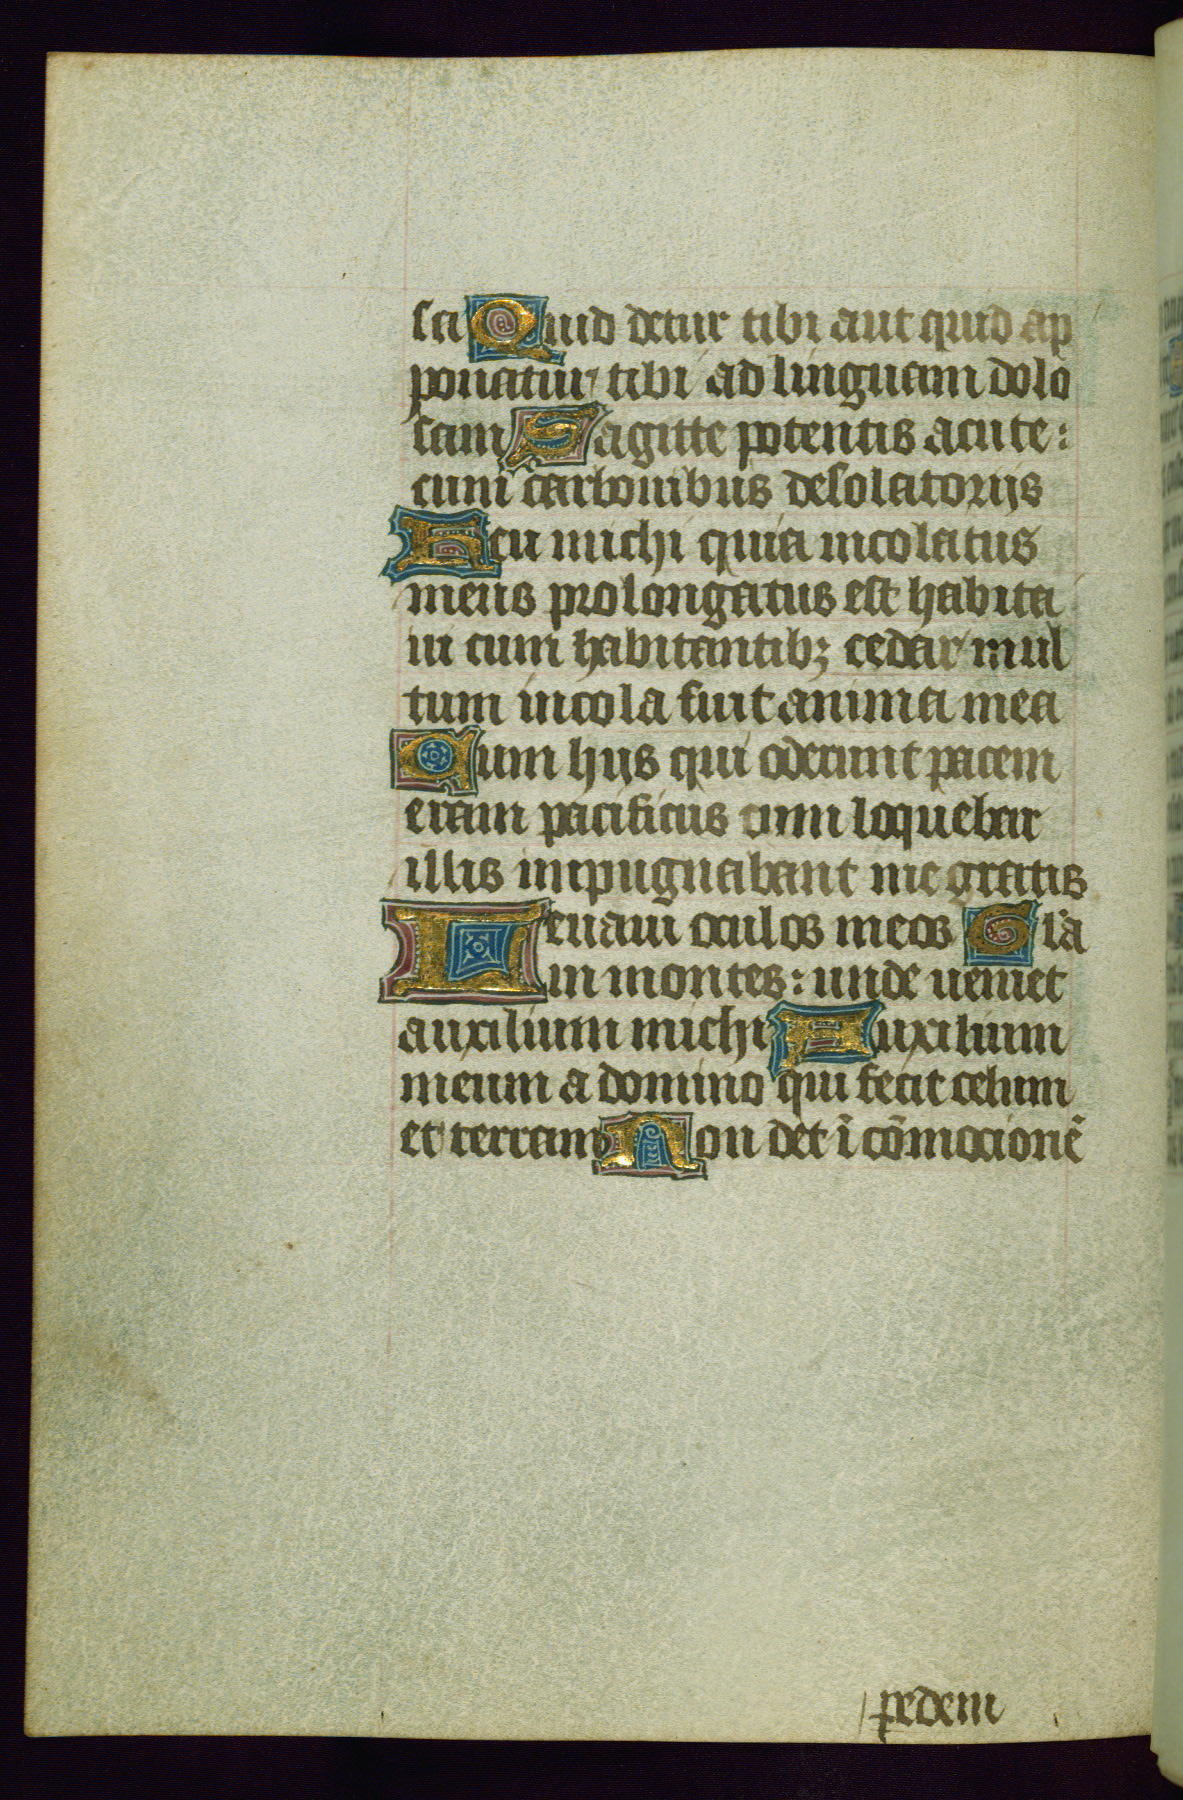 sa Quid detur tibi aut quid ap
ponatur tibi ad linguam dolo
sam Sagitte potentis acute:
cum carbonibus desolatorijs
Heu michi quia incolatus
meus prolongatus est habita
ui cum habitantibꝫ cedar mul
tum incola fuit anima mea
Cum hijs qui oderunt pacem
eram pacificus cum loquebar
illis inpugnabant me gratis
Leuaui oculos meos Gła
in montes: unde ueniet
auxilium michi Auxilium
meum a domino qui fecit celum
et terram Non det ī cōmocionē
pedem